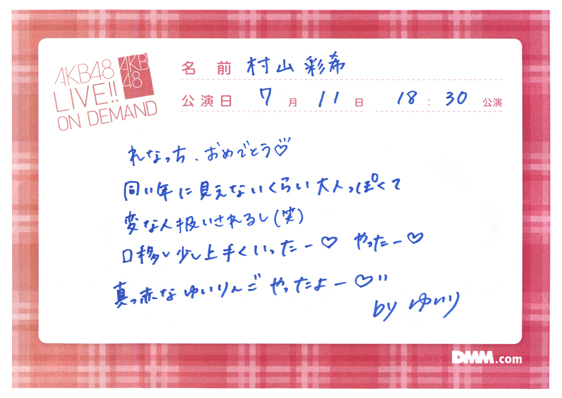 AKB48
LIVE!!
ON DEMAND
AKB
48
名 前 村山 彩希
公演日 7 月 11 日 18 : 30 公演
れなっち、おめでとう♡
同い年に見えないくらい大人っぽくて
変な人扱いされるし(笑)
口移し少し上手くいったー♡ やったー♡
真っ赤なゆいりんごやったよー♡!!
by ゆいり
DMM.com